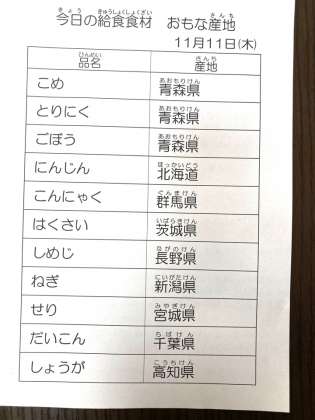 今日の給食食材 おもな産地
11月11日(木)
品名 産地
こめ 青森県
とりにく 青森県
ごぼう 青森県
にんじん 北海道
こんにゃく 群馬県
はくさい 茨城県
しめじ 長野県
ねぎ 新潟県
せり 宮城県
だいこん 千葉県
しょうが 高知県